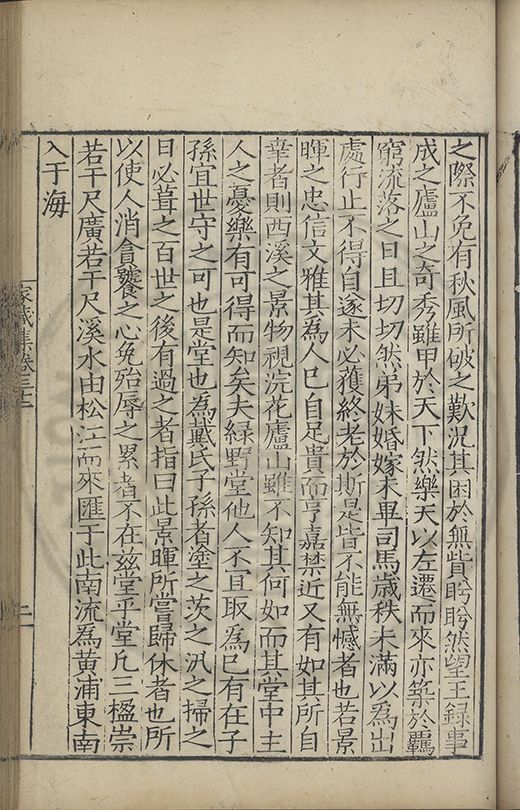 之際不免有秋風所破之歎況其困於無貲盻盻然望王録事
成之廬山之奇秀雖甲於天下然樂天以左遷而來亦築於羈
窮流落之日且切切然弟妹婚嫁未畢司馬歳秩未滿以為出
處行止不得自遂未必獲終老於斯是皆不能無憾者也若景
暉之忠信文雅其為人已自足貴而亨嘉樊近又有如其所自
幸者則西溪之景物視浣花廬山雖不知其何如而其堂中主
人之憂樂有可得而知矣夫緑野堂他人不宜取為已有在子
孫宜世守之可也是堂也為戴氏子孫者塗之茨之汎之掃之
日必葺之百世之後有過之者指曰此景暉所嘗歸休者也所
以使人消貪饕之心免殆辱之累者不在兹堂乎堂凢三楹崇
若干尺廣若干尺溪水由松江而來匯于此南流為黄浦東南
入于海
家藏集卷三十